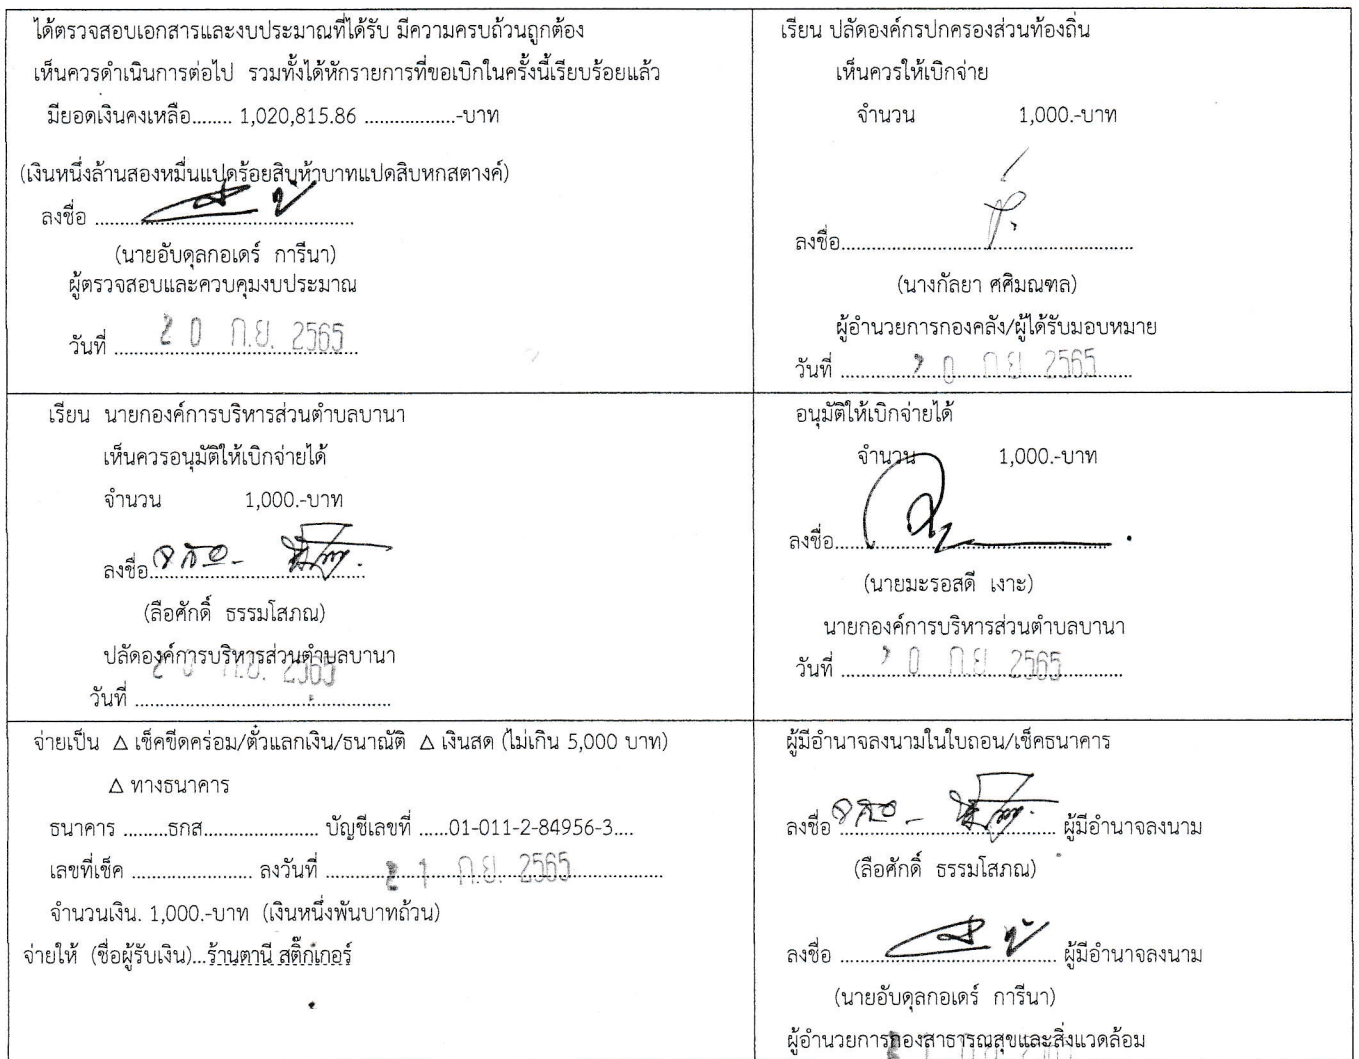 ได้ตรวจสอบเอกสารและงบประมาณที่ได้รับ มีความครบถ้วนถูกต้อง
เห็นควรดำเนินการต่อไป รวมทั้งได้หักรายการที่ขอเบิกในครั้งนี้เรียบร้อยแล้ว
มียอดเงินคงเหลือ........ 1,020,815.86 ..................-บาท
(เงินหนึ่งล้านสองหมื่นแปดร้อยสิบห้าบาทแปดสิบหกสตางค์)
ลงชื่อ
(นายอับดุลกอเดร์ การีนา)
ผู้ตรวจสอบและควบคุมงบประมาณ
วันที่ 20 ก.ย. 2565
เรียน ปลัดองค์กรปกครองส่วนท้องถิ่น
เห็นควรให้เบิกจ่าย
จำนวน 1,000.-บาท
ลงชื่อ
(นางกัลยา ศศิมณฑล)
ผู้อำนวยการกองคลัง/ผู้ได้รับมอบหมาย
วันที่ 20 ก.ย. 2565
เรียน นายกองค์การบริหารส่วนตำบลบานา
เห็นควรอนุมัติให้เบิกจ่ายได้
จำนวน 1,000.-บาท
ลงชื่อ
(ลือศักดิ์ ธรรมโสภณ)
ปลัดองค์การบริหารส่วนตำบลบานา
20 ก.ย. 2565
วันที่
อนุมัติให้เบิกจ่ายได้
จำนวน 1,000.-บาท
ลงชื่อ
(นายมะรอสดี เงาะ)
นายกองค์การบริหารส่วนตำบลบานา
วันที่ 20 ก.ย. 2565
จ่ายเป็น Δ เช็คขีดคร่อม/ตั๋วแลกเงิน/ธนาณัติ Δ เงินสด (ไม่เกิน 5,000 บาท)
Δ ทางธนาคาร
ธนาคาร .........ธกส....................... บัญชีเลขที่ ......01-011-2-84956-3....
เลขที่เช็ค ........................ ลงวันที่ 21 ก.ย. 2565
จำนวนเงิน. 1,000.-บาท (เงินหนึ่งพันบาทถ้วน)
จ่ายให้ (ชื่อผู้รับเงิน)...ร้านตานี สติ๊กเกอร์
ผู้มีอำนาจลงนามในใบถอน/เช็คธนาคาร
ลงชื่อ ผู้มีอำนาจลงนาม
(ลือศักดิ์ ธรรมโสภณ)
ลงชื่อ ผู้มีอำนาจลงนาม
(นายอับดุลกอเดร์ การีนา)
ผู้อำนวยการกองสาธารณสุขและสิ่งแวดล้อม